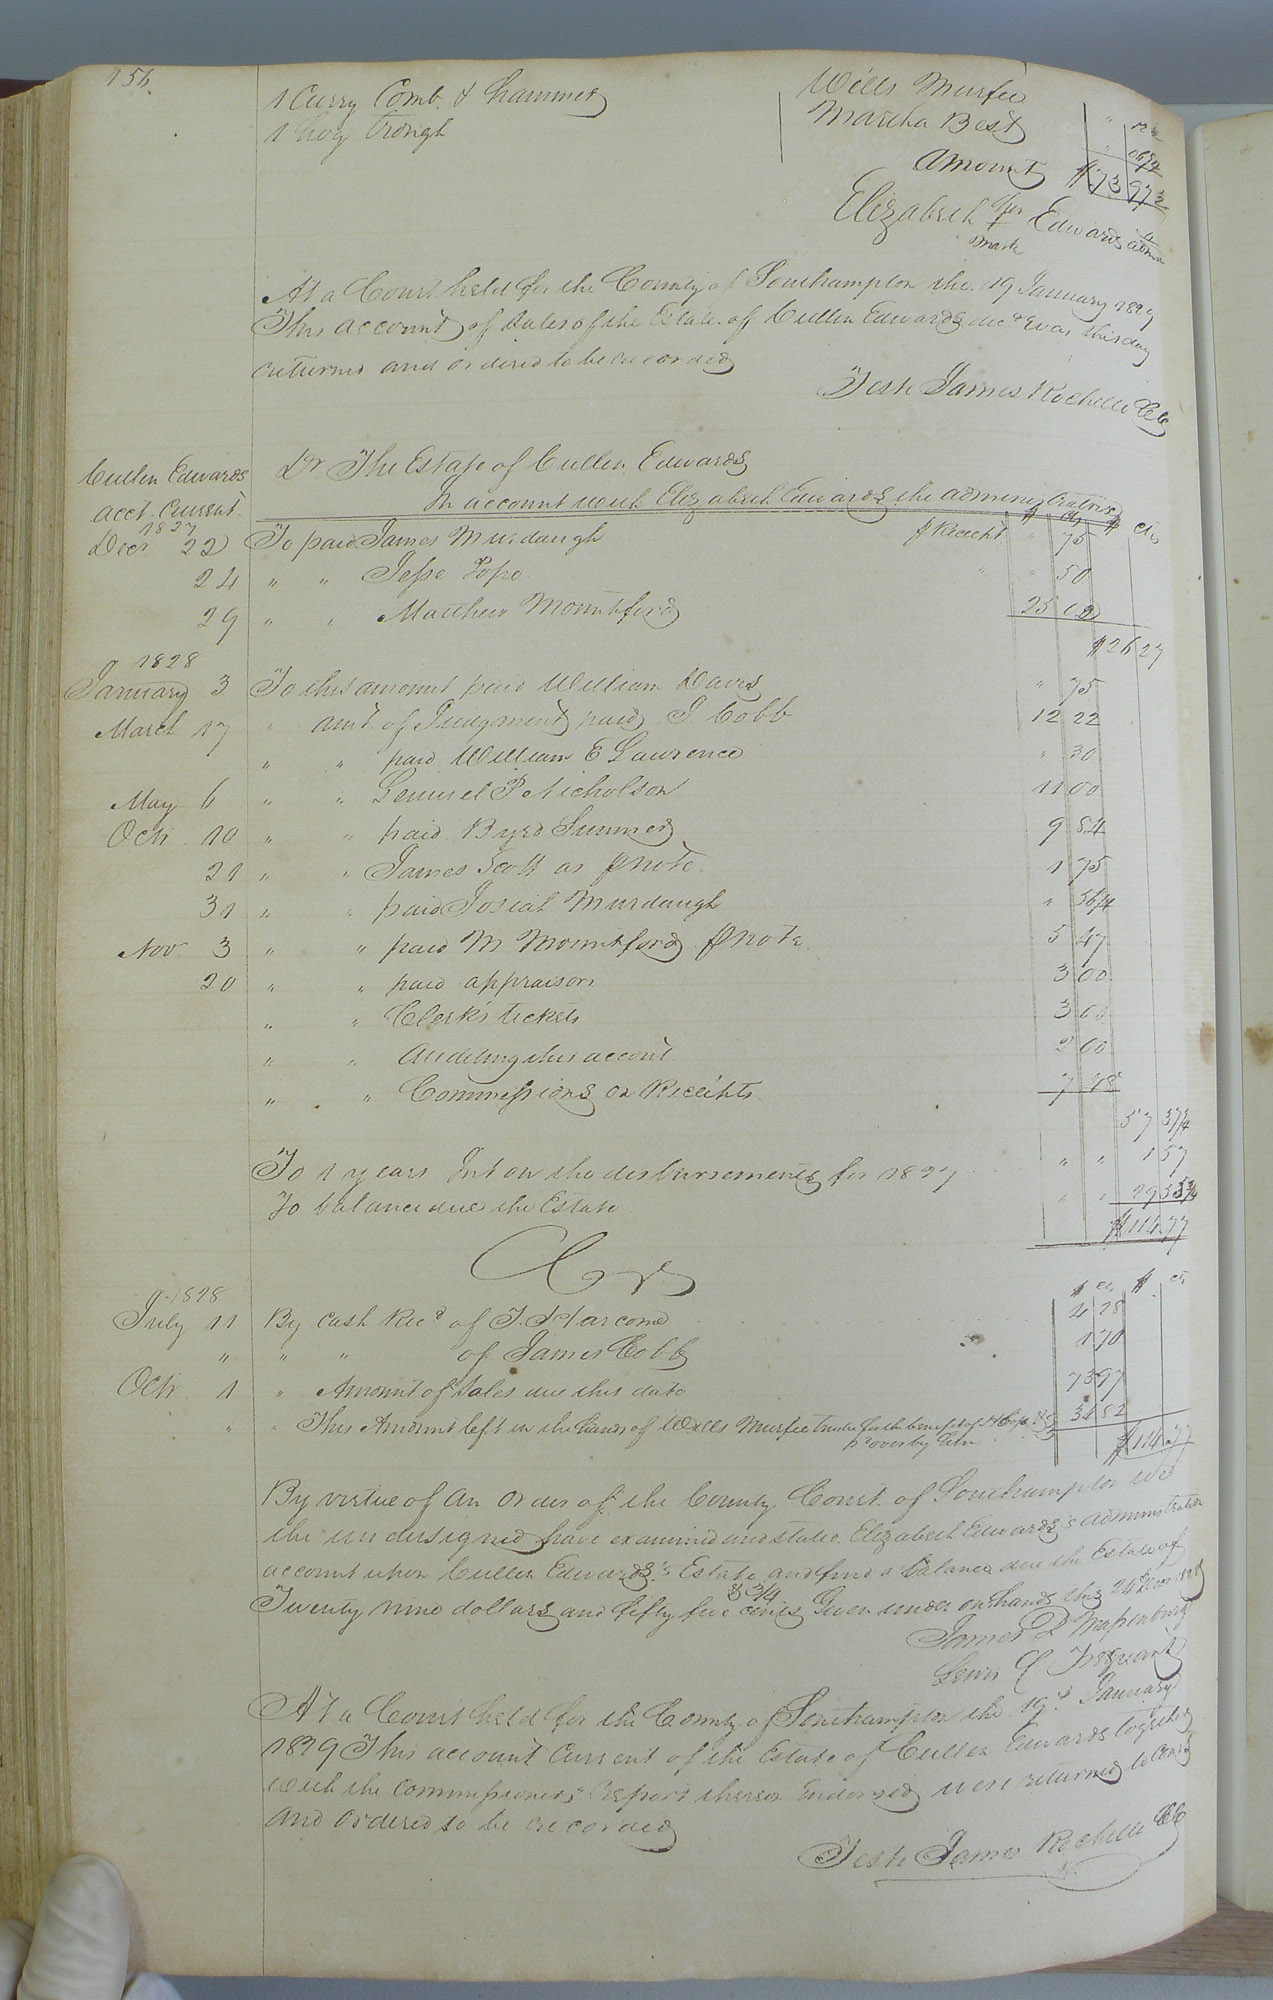 156.
1 Curry Comb. & hammer Wills Murfee 12 ½
1 hog trough Martha Best 06 ¼
Amount $73 97 3
Elizabeth her Edwards admx
mark
At a Court held for the County of Southampton the 19 January 1829
This account of sales of the Estate of Cullen Edwards decd was this day
returned and ordered to be recorded
Teste James Rochelle CC
Cullen Edwards Dr The Estate of Cullen Edwards
acct. Current. In account with Elizabeth Edwards the administratrix
1827 $ cts $ cts
Decr. 22 To paid James Murdaugh Receipt " 75
24 " " Jesse Pope " " 50
29 " " Matthew Mountford 25 02
$26 27
1828
January 3 To this amount paid William Davis " 75
March 17 " amt. of Judgment paid J. Cobb 12 22
" " paid William E Lawrence " 30
May 6 " " Lemuel P Nicholson 11 00
Octr. 10 " " paid Byrd Sumner 9 84
21 " " James Scott as note. 1 75
31 " " paid Josiah Murdaugh " 56/4
Nov. 3 " " paid M Mountford note. 5 47
20 " " paid appraisors 3 00
" " Clerk's tickets 3 00
" " Auditing this account. 2 00
" " Commissions on Receipts 7 48
57 37 ¾
To 1 years Int on the disbursements for 1827 " " 1 57
To balance due the Estate " " 29 55 ¾
$114.77
Crs
1828 $ cts $. cts
July 11 By cash Recd of T. Harcome 4 28
" " " of James Cobb 1 70
Octr. 1 " Amount of sales due this date 73 97
" " This Amount left in the hands of Wills Murfee trustee for the benefit of 34 82
$114.77
By virtue of an order of the County Court of Southampton we
the undersigned have examined and stated Elizabeth Edwards's administration
account upon Cullen Edwards's Estate and find a balance due the Estate of
Twenty nine dollars and fifty five & ¾ cents Given under our hands this 24th Decr 1828
James D Massenburg
Lewis
At a Court held for the County of Southampton the 19th January
1829 This account Current of the Estate of Cullen Edwards together
with the commissioners Report thereon Endorsed were returned to Court
and ordered to be recorded
Teste James Rochelle CC